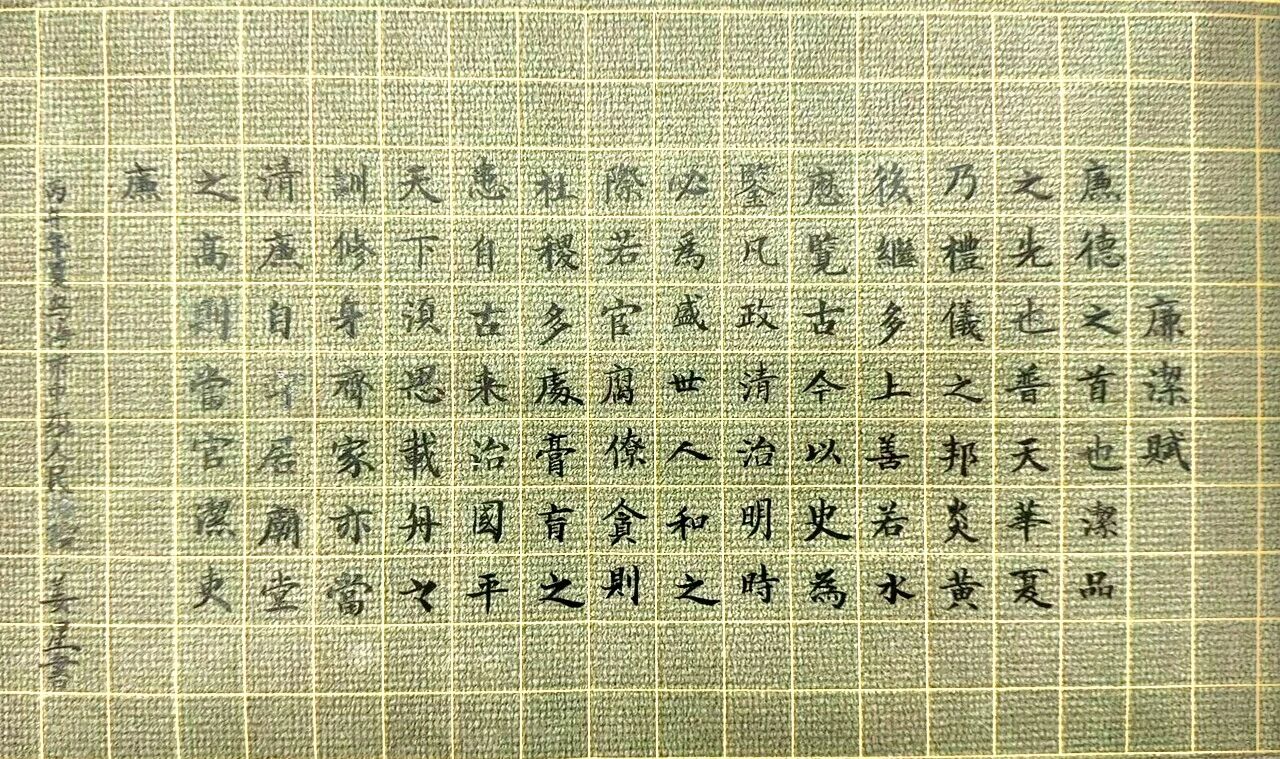 廉潔賦
廉德之首也潔品
之先也普天華夏
乃禮儀之邦炎黃
後繼多上善若水
應覽古今以史為
鑒凡政清治明時
必為盛世人和之
際若官腐僚貪則
社稷多處膏肓之
患自古来治國平
天下須思載舟之
訓修身齊家亦當
清廉自守居廟堂
之高則當官潔吏
廉
年夏 市中 人民 姜 書